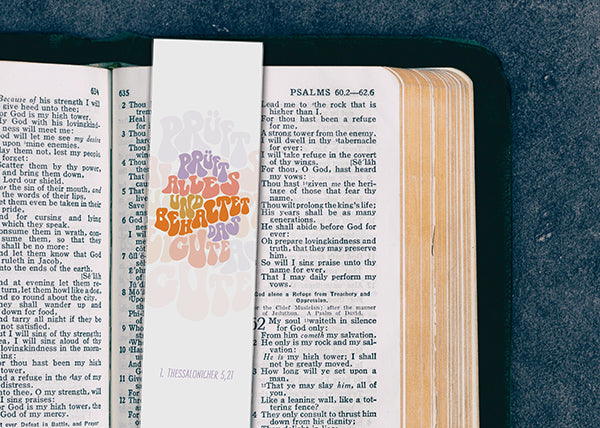 634
Because of his strength I will
give heed unto thee;
For God is my high tower.
My God with his lovingkind-
ness will meet me:
God will let me see my desire
upon mine enemies.
Slay them not, lest my people
forget:
Scatter them by thy power,
and bring them down,
Lord our shield.
For the sin of their mouth, and
the words of their lips,
Let them even be taken in their
pride,
And for cursing and lying
which they speak.
Consume them in wrath, con-
sume them, so that they
shall be no more:
And let them know that God
ruleth in Jacob,
Unto the ends of the earth.
[Sē'lăh
And at evening let them re-
turn, let them howl like a dog,
and go round about the city.
They shall wander up and
down for food,
And tarry all night if they be
not satisfied.
But I will sing of thy strength;
Yea, I will sing aloud of thy
lovingkindness in the morn-
ing:
For thou hast been my high
tower,
And a refuge in the day of my
distress.
Unto thee, O my strength, will
I sing praises:
For God is my high tower, the
God of my mercy.
over Defeat in Battle, and Prayer
635
2 Thou
3 Thou
4 Thou
5 Thou
6 God
7
8
9 Who
10 Hast
11 Give
12 Through
PRÜFT
PRÜFT
ALLES
UND
BEHALTET
DAS
GUTE
GUTE
1. THESSALONICHER 5,21
PSALMS 60.2—62.6
Lead me to the rock that is
higher than I.
For thou hast been a refuge
for me,
A strong tower from the enemy.
I will dwell in thy tabernacle
for ever:
I will take refuge in the covert
of thy wings. [Sē'lăh
For thou, O God, hast heard
my vows:
Thou hast given me the heri-
tage of those that fear thy
name.
Thou wilt prolong the king's life;
His years shall be as many
generations.
He shall abide before God for
ever:
Oh prepare lovingkindness and
truth, that they may preserve
him.
So will I sing praise unto thy
name for ever,
That I may daily perform my
vows.
God alone a Refuge from Treachery and
Oppression.
For the Chief Musician; after the manner
of Jeduthun. A Psalm of David.
62 My soul waiteth in silence
for God only:
From him cometh my salvation.
2 He only is my rock and my sal-
vation:
He is my high tower; I shall
not be greatly moved.
3 How long will ye set upon a
man,
That ye may slay him, all of
you,
Like a leaning wall, like a tot-
tering fence?
4 They only consult to thrust him
down from his dignity;